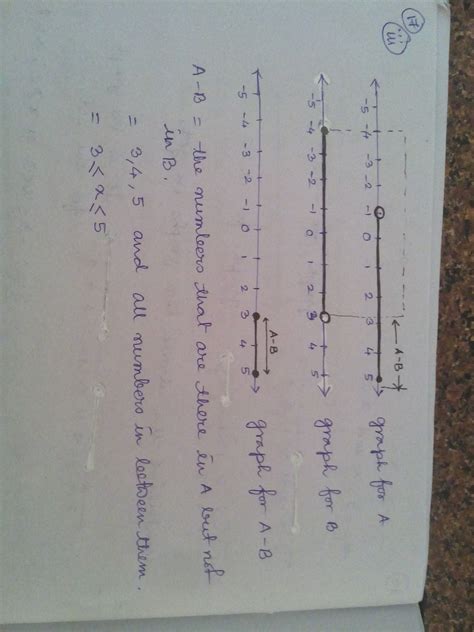 17
iii
A-B
-5 -4 -3 -2 -1 0 1 2 3 4 5 graph for A
-5 -4 -3 -2 -1 0 1 2 3 4 5 graph for B
A-B
-5 -4 -3 -2 -1 0 1 2 3 4 5 graph for A-B
A-B = the numbers that are there in A but not
in B.
= 3, 4, 5 and all numbers in between them.
= 3 ≤ x ≤ 5